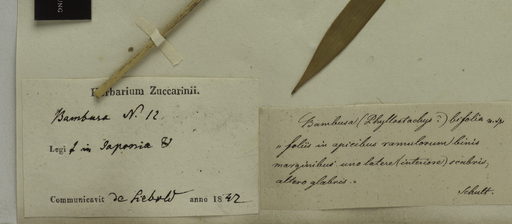 Herbarium Zuccarinii.
Bambusa N. 12
Legi f in Japonia
Communicavit de Siebold anno 1842
Bambusa (Phyllostachys?) bifolia
"foliis in apicibus ramulorum binis
marginibus uno latere (interiore) scabris,
altero glabris."
Schult.